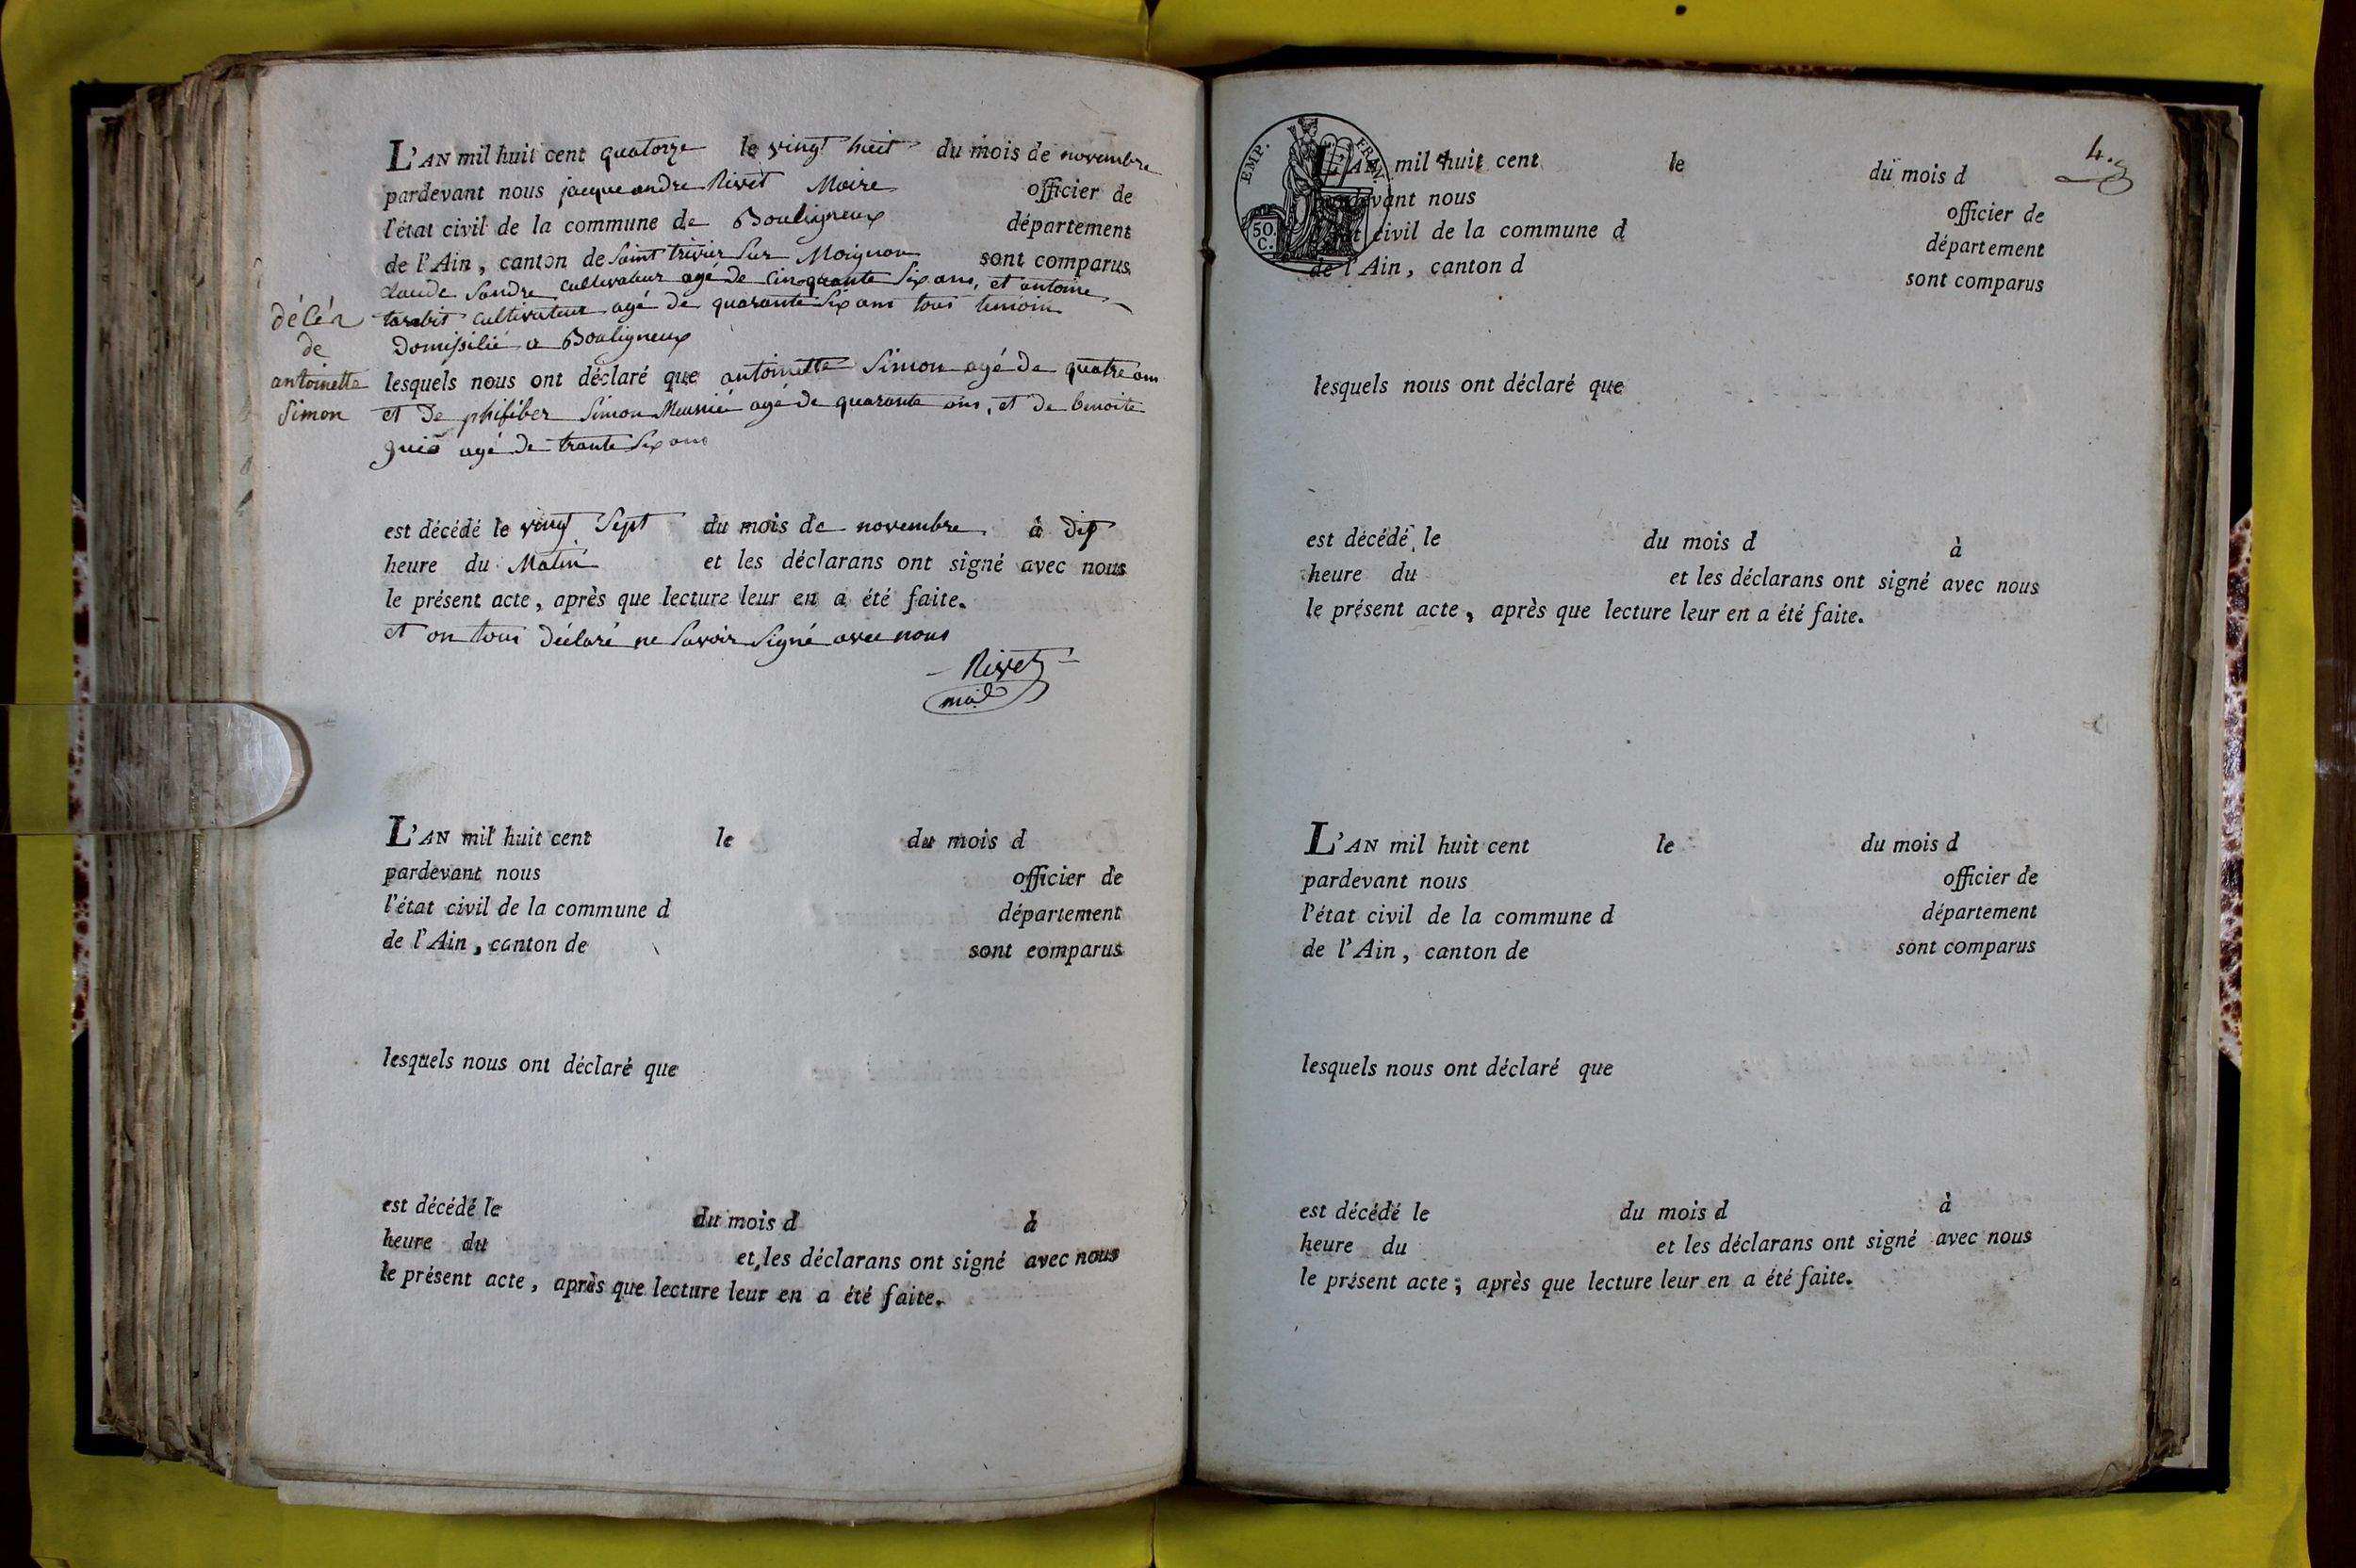 L'AN mil huit cent quatorze le vingt huit du mois de novembre
pardevant nous jacque andre Rivet Maire officier de
l'état civil de la commune de Bouligneux département
de l'Ain, canton de Saint trivier Sur Moignan sont comparus
claude Sandre cultivateur agé de Cinquante Six ans, et antoine
cultivateur agé de quarante Six ans tous temoin
Domisilié a Bouligneux
décéz
de
antoinette
Simon
lesquels nous ont déclaré que antoinette Simon agé de quatre ans
et De phifiber Simon Meunié agé de quarante ans, et de benoite
agé de trante Six ans
est décédé le vingt Sept du mois de novembre à dix
heure du Matin et les déclarans ont signé avec nous
le présent acte, après que lecture leur en a été faite.
et on tous déclaré ne Savoir Signé avec nous
Rivet
L'AN mil huit cent le du mois d
pardevant nous officier de
l'état civil de la commune d département
de l'Ain, canton de sont comparus
lesquels nous ont déclaré que
est décédé le du mois d à
heure du et les déclarans ont signé avec nous
le présent acte, après que lecture leur en a été faite.
4.
EMP. FRAN.
50.
C.
L'AN mil huit cent le du mois d
pardevant nous officier de
l'état civil de la commune d département
de l'Ain, canton d sont comparus
lesquels nous ont déclaré que
est décédé le du mois d à
heure du et les déclarans ont signé avec nous
le présent acte, après que lecture leur en a été faite.
L'AN mil huit cent le du mois d
pardevant nous officier de
l'état civil de la commune d département
de l'Ain, canton de sont comparus
lesquels nous ont déclaré que
est décédé le du mois d à
heure du et les déclarans ont signé avec nous
le présent acte; après que lecture leur en a été faite.